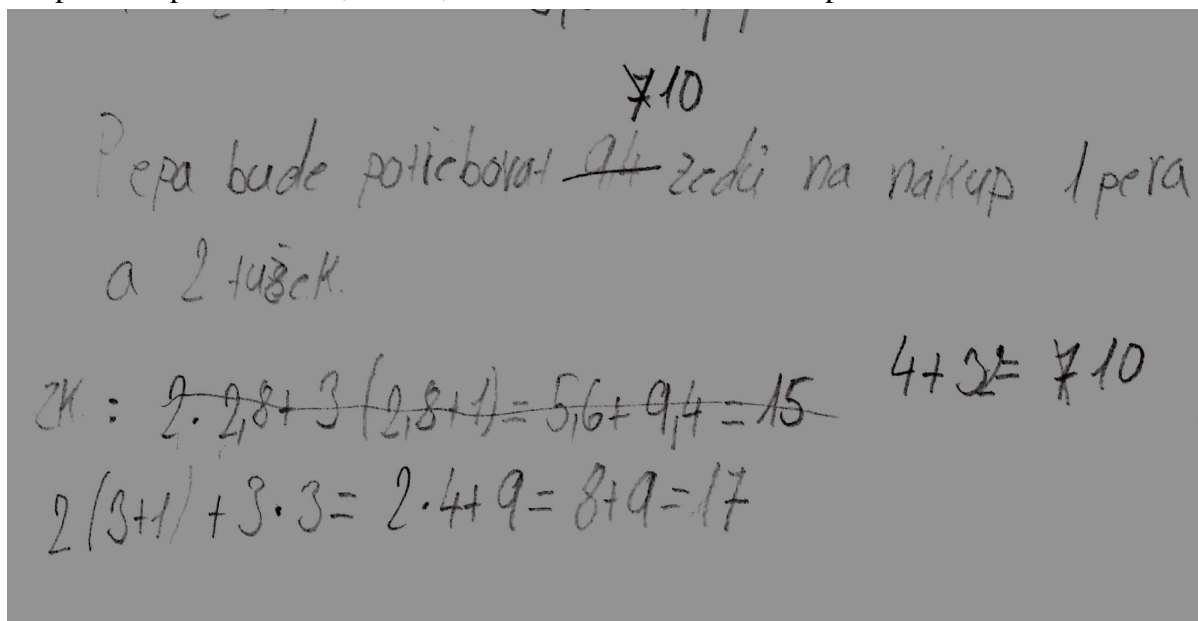 7 10
Pepa bude potřebovat 9,4 zedů na nákup 1 pera
a 2 tužek.
4+3·2= 7 10
ZK: 2·2,8+3(2,8+1)=5,6+9,4=15
2(3+1)+3·3=2·4+9=8+9=17